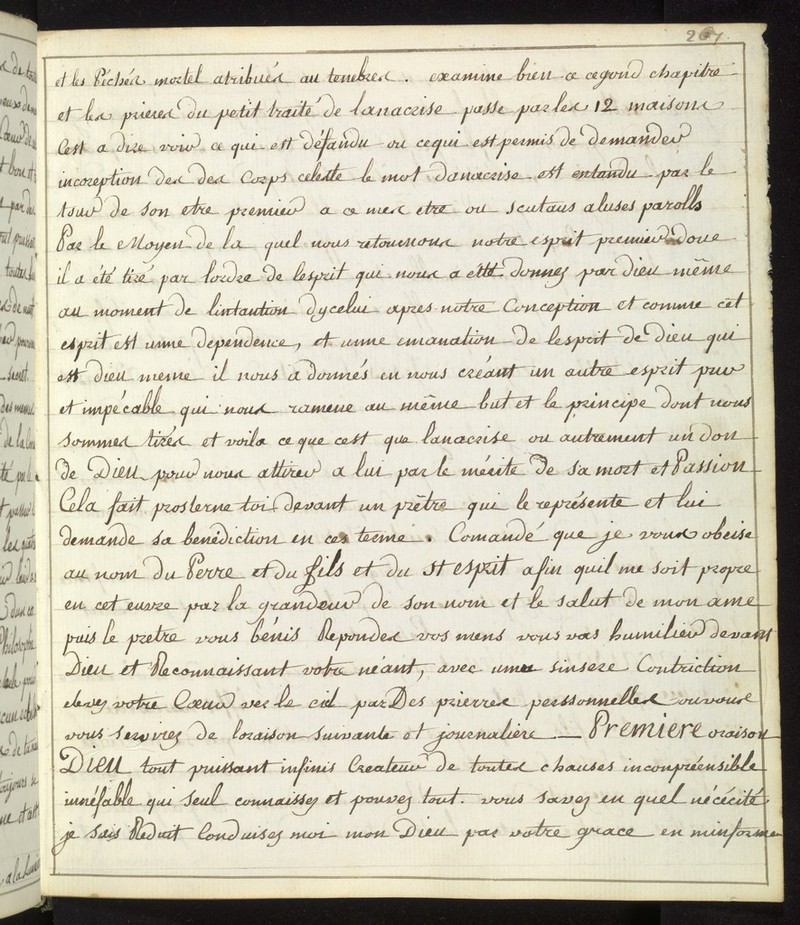 267.
et les Péchés mortel atribués au tenebres. examine bien a cegond chapitre
et les prieres du petit traité de lanacrise passe par les 12 maisons
Cest a dire voir ce qui est défandu ou cequi est permis de demander
incoreption des des Corps celeste le mot danacrise est entandu par le
tour de son etre premier a ce mes etre ou scutaus aluses parolls
Par le Moyen de la quel nous retournons notre esprit premier doue
il a été tiré par lordre de lesprit qui nous a été donnez par dieu même
au moment de lintaution dycelui apres notre Conception et comme cet
esprit est unne dependence, et unne emanation de lesprit de Dieu qui
est dieu meme il nous a donnés en nous créant un autre esprit pur
et impécable qui nous ramene au même but et le principe dont nous
sommes tirés et voila ce que cest que lanacrise ou autrement un don
de Dieu pour nous attirer a lui par le mérite de sa mort et Passion
Cela fait prosterne toi devant un prêtre qui le représente et lui
demande sa benédiction en ces terme. Comandé que je vous obeise
au nom du Perre et du fils et du st esprit afin quil me soit propre
en cet euvre par la grandeur de son nom et le salut de mon ame
puis le pretre vous bénis Repondes vos mens vous vas humilier devant
Dieu et Reconnaissant votre néant, avec unne sinsere Contriction
elevez votre Cœur ver le ciel par Des prierres perssonnelles ouvous
vous servirez de loraison suivante et journalière — Premiere oraison
Dieu tout puissant infinis Createur de toutes chauses inconpréensible
innéfable qui seul connaissez et pouvez tout. vous savez en quel nécécité
je sais Réduit Conduisez moi mon Dieu par votre grace en minformer